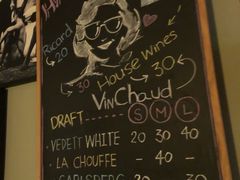 Ricard
20
House Wines
30
30
Vin Chaud
DRAFT ------ S M L
· VEDETT WHITE 20 30 40
· LA CHOUFFE - 40 -
CARLSBERG 20 30